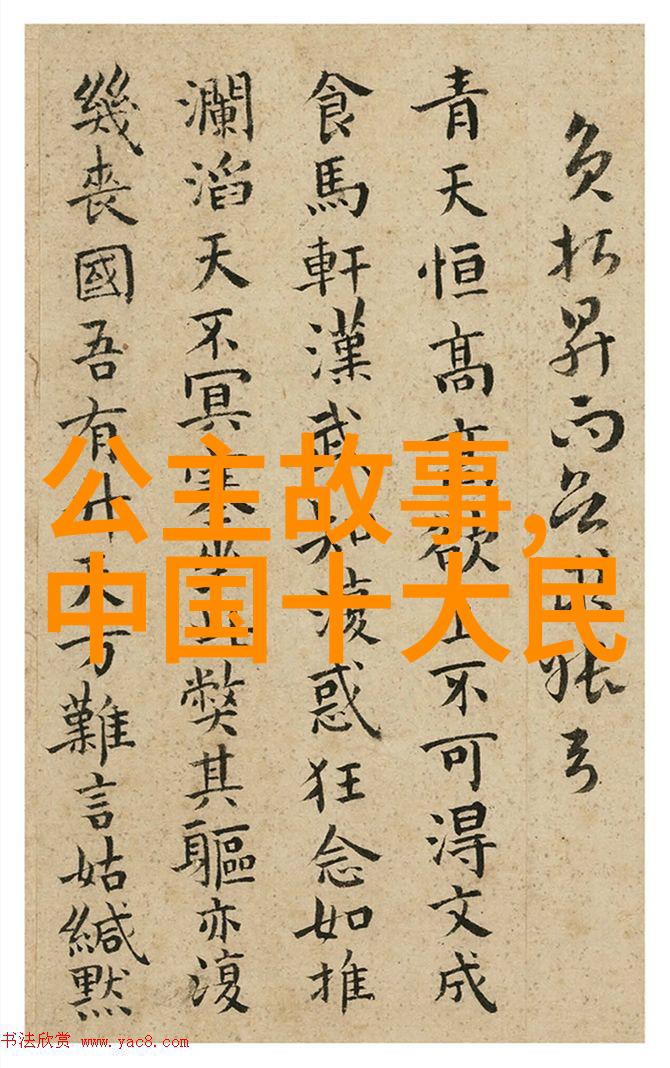 昇而弓
青天恒高欲不可得文成
食馬軒漢武復惑狂念如推
瀾滔天不冥弊其軀亦復
幾喪國吾有難言姑緘默
公主故事,
中国十大民
书法欣赏 www.yac8.com